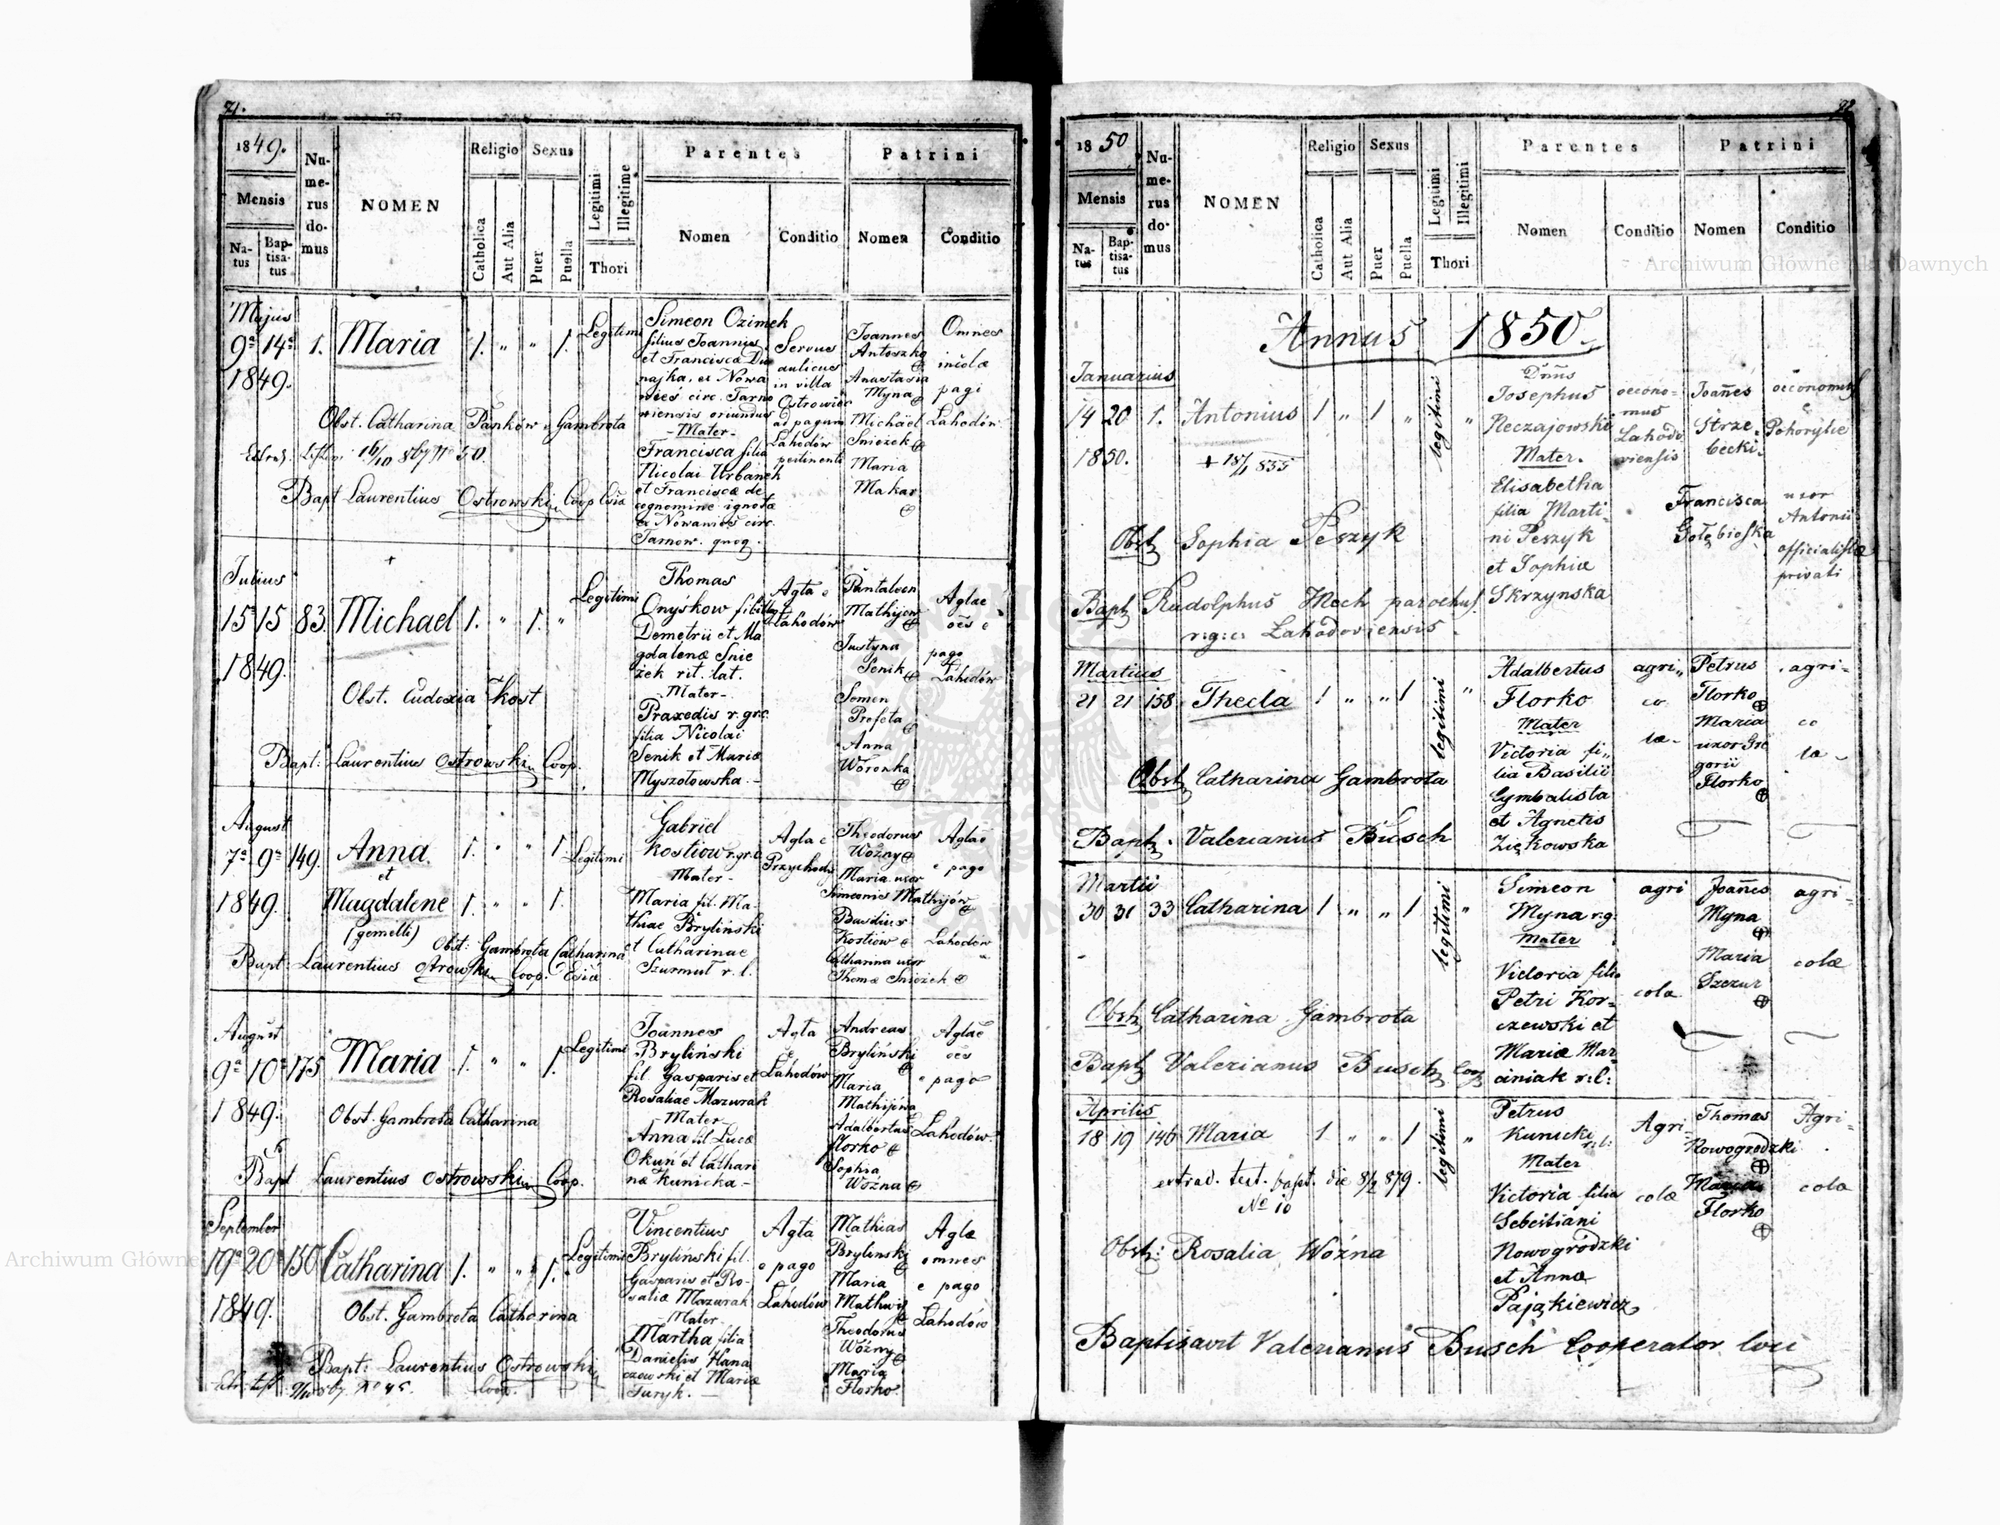 71.
1849.
Mensis
Na-
tus
Bap-
tisa-
tus
Nu-
me-
rus
do-
mus
NOMEN
Religio
Catholica
Aut Alia
Sexus
Puer
Puella
Legitimi
Illegitime
Thori
Parentes
Nomen
Conditio
Patrini
Nomen
Conditio
Majus
9ª 14ª 1. Maria 1. " " 1. Legitimi
1849.
Obst. Catharina Pańków Gambrota
16/10 867 Nº 50.
Bapt Laurentius Ostrowski Coop
Simeon Ozimek
filius Joannis
et Francisca Du
najka, ex Nowa
wieś circ. Tarno
viensis oriundus
- Mater -
Francisca filia
Nicolai Urbanek
et Francisca de
cognomine ignota
ex Nowawieś circ.
Tarnow. quoq.
Servus
aulicus
in villa
Ostrowiec
ad pagum
Lahodów
pertinenti
Joannes
Antoszko
Anastasia
Myna
Michael
Sniezek
Maria
Makar
Omnes
incolæ
pagi
Lahodów
Julius
15 15 83. Michael 1. " 1. " Legitimi
1849.
Obst. Eudoxia Kost
Bapt: Laurentius Ostrowski Coop.
Thomas
Onyśkow
Demetrii et Ma
gdalenæ Snie
żek rit. lat.
- Mater -
Praxedis r. grc.
filia Nicolai
Senik et Mariæ
Myszołowska. -
Agta e
Lahodów
Pantaleon
Mathijów
Justyna
Senik
Semen
Profeta
Anna
Woronka
Aglae
oēs e
pago
Lahodów
August
7ª 9ª 149. Anna 1. " " 1 Legitimi
et
1849. Magdalene 1. " " 1.
(gemelli)
Obst: Gambrota Catharina
Bapt: Laurentius Ostrowski Coop.
Gabriel
Kostiow r. gr. c.
- Mater -
Maria fil. Ma-
thiae Bryliński
et Catharinae
Szurmut r. l.
Agla e
Theodorus
Woźny
Maria uxor
Simeonis Mathijów
Kostiow
Catharina uxor
Thomæ Sniezek
Aglae
e pago
Lahodów
August
9ª 10ª 175 Maria 1. " " 1. Legitimi
1849.
Obst. Gambrota Catharina
Bapt Laurentius Ostrowski Coop.
Joannes
Bryliński
fil. Gasparis et
Rosaliae Mazurak
- Mater -
Anna fil Lucæ
Okuń et Cathari
næ Kunicka -
Agta
e
Lahodów
Andreas
Bryliński
Maria
Mathijówa
Adalbertus
Florko
Sophia
Woźna
Aglae
oēs
e pago
Lahodów
September
19ª 20ª 150 Catharina 1. " " 1. Legitimi
1849.
Obst. Gambrota Catharina
Bapt: Laurentius Ostrowski
Coop.
Vincentius
Bryliński fil.
Gasparis et Ro-
saliæ Mazurak
- Mater -
Martha filia
Danielis Hana
czewski et Mariæ
Turyk. -
Agta
e pago
Lahodów
Mathias
Brylinski
Maria
Theodorus
Woźny
Maria
Florko.
Aglæ
omnes
e pago
Lahodów
1850
Mensis
Na-
tus
Bap-
tisa-
tus
Nu-
me-
rus
do-
mus
NOMEN
Religio
Catholica
Aut Alia
Sexus
Puer
Puella
Legitimi
Illegitimi
Thori
Parentes
Nomen
Conditio
Patrini
Nomen
Conditio
Annus 1850.
Januarius
14 20 1. Antonius 1 " 1 " legitimi "
1850.
Obst Sophia Peszyk
Bapt Rudolphus Mech parochus
r:g:c: Lahodoviensis.
Dnus
Josephus
Neczajowski
Mater.
Elisabetha
filia Marti-
ni Peszyk
et Sophiæ
Skrzynska
oecono-
mus
Lahodo
viensis
Joañes
Strze-
becki.
Francisca
Gołębioska
oeconomus
Pohorylce
uxor
Antonii
officialistæ
privati
Martius
21 21 158 Thecla 1 " " 1 legitimi "
Obst Catharina Gambrota
Bapt. Valerianus Busch
Adalbertus
Florko
Mater
Victoria fi-
lia Basilii
Cymbalista
et Agnetis
Ziękowska
agri-
co
læ -
Petrus
Florko
Maria
uxor Gre
gorii
Florko
agri-
co
læ -
Martii
30 31 33 Catharina 1 " " 1 legitimi "
Obst Catharina Gambrota
Bapt Valerianus Busch Coop
Simeon
Myna r:g.
Mater
Victoria filia
Petri Kor-
czewski et
Mariæ Mar-
ciniak r:l:
agri
cola
Joañes
Myna
Maria
Szczur
agri-
colæ
Aprilis
18 19 146 Maria 1 " " 1 legitimi "
extrad. test. bapt. die 8/2 879.
Nº 10
Obst: Rosalia Woźna
Petrus
Kunicki r:l:
Mater
Victoria filia
Sebestiani
Nowogrodzki
et Annæ
Pająkiewicz
Agri-
colæ
Thomas
Nowogrodzki
Maria
Florko
Agri-
colæ
Baptisavit Valerianus Busch Cooperator loci
Archiwum Główne Akt Dawnych
Archiwum Główne